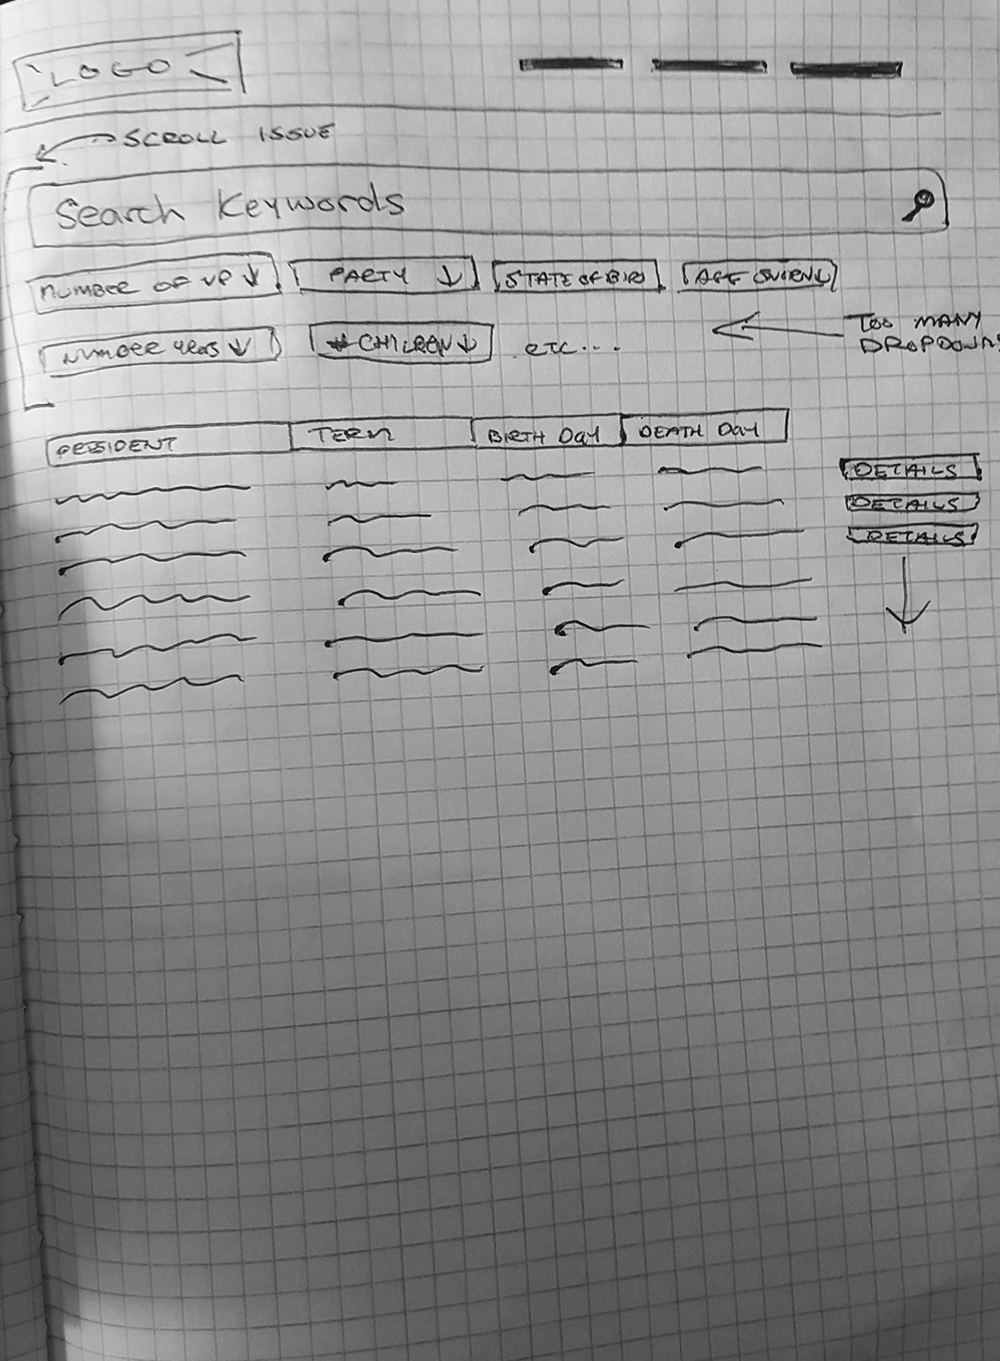 LOGO
SCROLL ISSUE
Search Keywords
NUMBER OF VP PARTY STATE OF BIR
NUMBER YEARS # CHILREN etc...
TOO MANY
DROPDOWNS
PRESIDENT TERM BIRTH DAY DEATH DAY
DETAILS
DETAILS
DETAILS